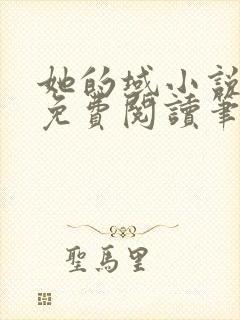 她的域小說
免費閱讀筆
聖馬里